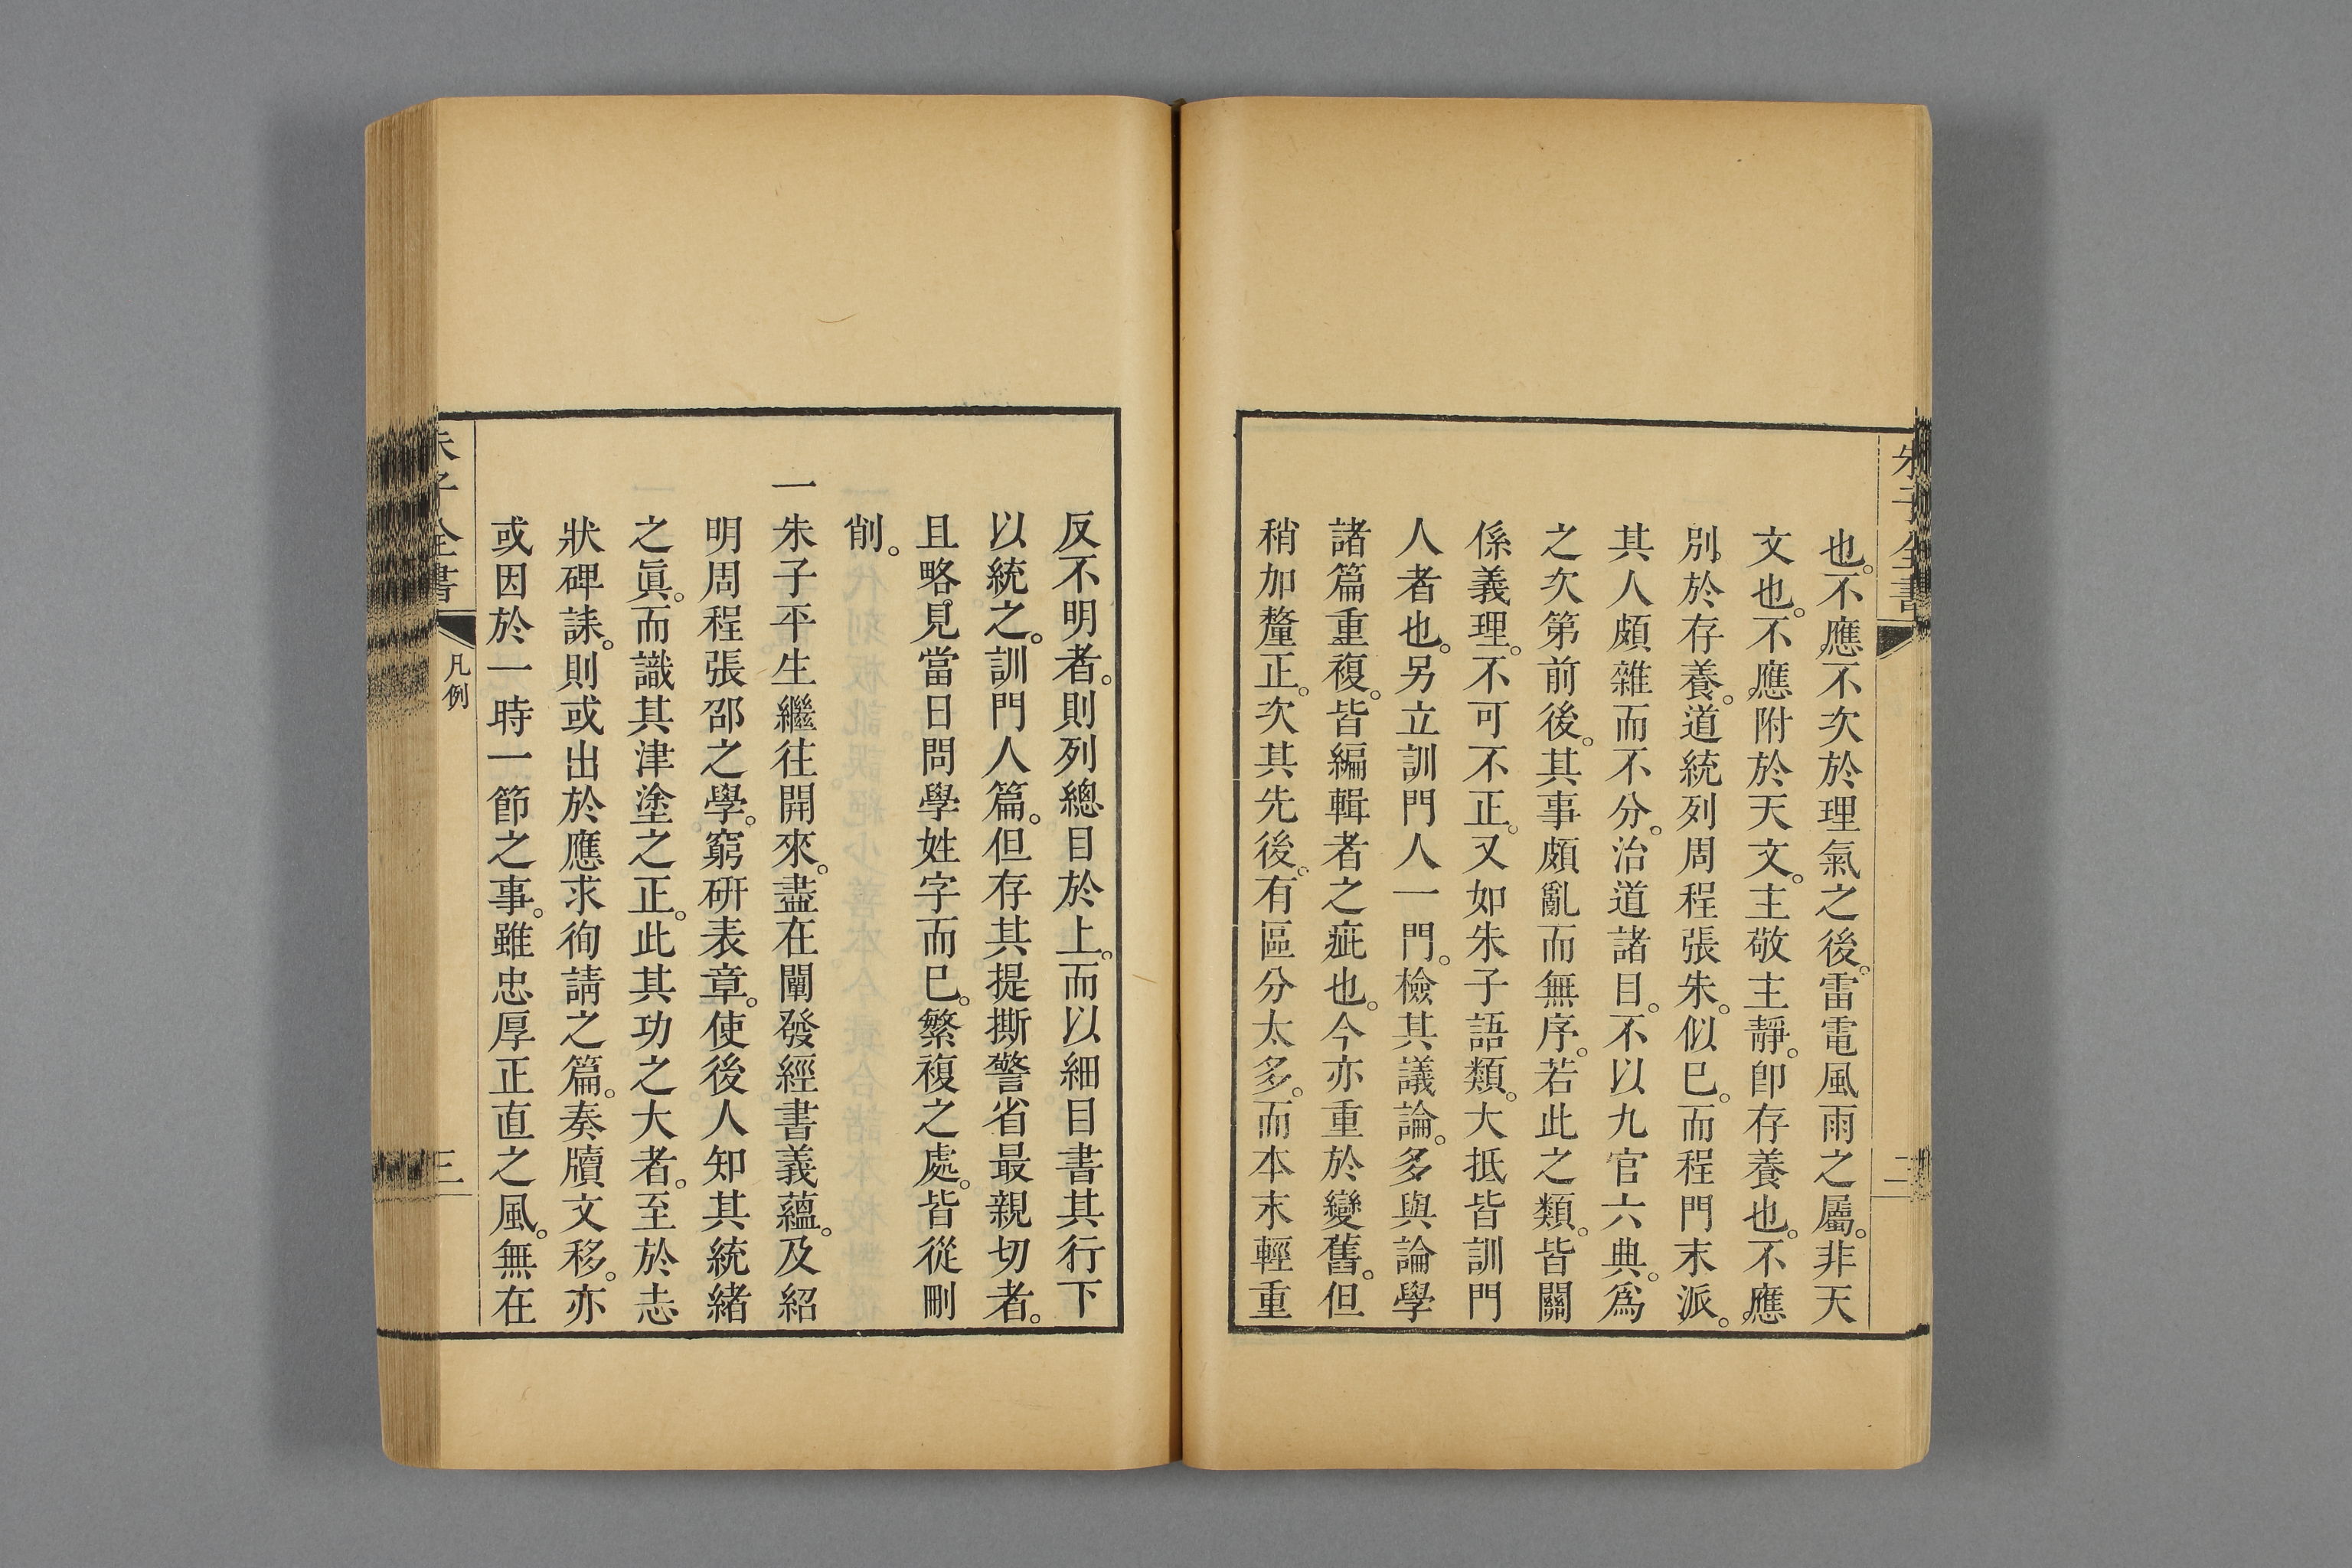 朱子全書
二
也。不應。不次於理氣之後。雷電風雨之屬。非天
文也。不應。附於天文。主敬主靜。卽存養也。不應。
別。於存養。道統列周程張朱。似巳。而程門末派。
其人頗雜而不分。治道諸目。不以九官六典。爲
之次第前後。其事頗亂而無序。若此之類。皆關
係義理。不可不正。又如朱子語類。大抵皆訓門
人者也。另立訓門人一門。檢其議論。多與論學
諸篇重複。皆編輯者之疵也。今亦重於變舊。但
稍加釐正。次其先後。有區分太多。而本末輕重
反不明者。則列總目於上。而以細目書其行下
以統之。訓門人篇。但存其提撕警省最親切者。
且略。見當日問學姓字而巳。繁複之處。皆從刪
削。
一朱子平生繼往開來。盡在闡發經書義蘊。及紹
明周程張邵之學。窮研表章。使後人知其統緒
之眞。而識其津塗之正。此其功之大者。至於志
狀碑誄。則或出於應求徇請之篇。奏牘文移。亦
或因於一時一節之事。雖忠厚正直之風。無在
朱子全書
凡例
三